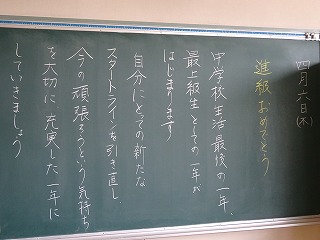 四月六日(木)
進級おめでとう
中学校生活最後の一年、
最上級生としての一年が
はじまります
自分にとっての新たな
スタートラインを引き直し、
今の頑張ろうという気持ち
を大切に充実した一年に
していきましょう